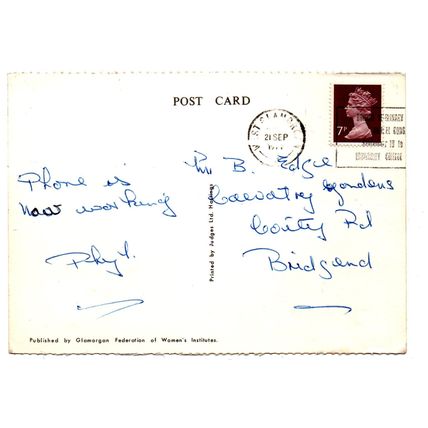 POST CARD
21 SEP
7P
Phone is
now working
Phyl.
Mr B. Edge
Gardens
County Rd
Bridgend
Printed by Judges Ltd. Hastings
Published by Glamorgan Federation of Women's Institutes.